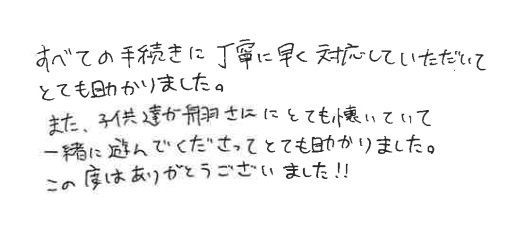 すべての手続きに丁寧に早く対応していただいて
とても助かりました。
また、子供達が さににとても懐いていて
一緒に遊んでくださってとても助かりました。
この度はありがとうございました!!